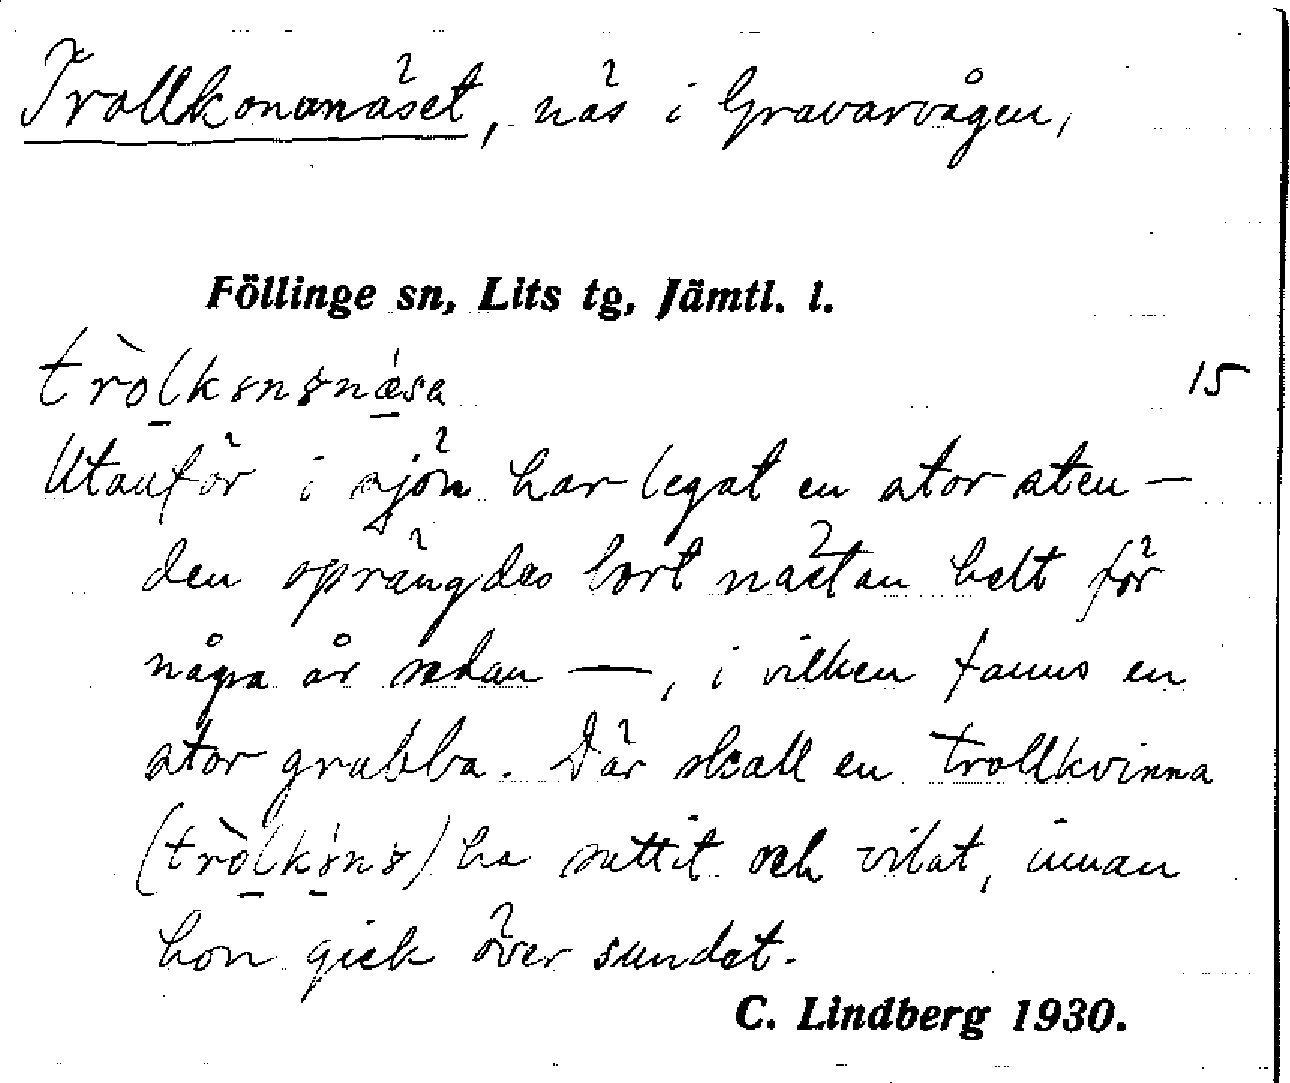 Trollkonanäset, näs i Gravarvågen,
Föllinge sn, Lits tg, Jämtl. l.
tròlkɤnɤnǽsa
15
Utanför i sjön har legat en stor sten —
den sprängdes bort nästan helt för
några år sedan —, i vilken fanns en
stor grubba. Där skall en trollkvinna
(tròlkɤ́nɤ) ha suttit och vilat, innan
hon gick över sundet.
C. Lindberg 1930.